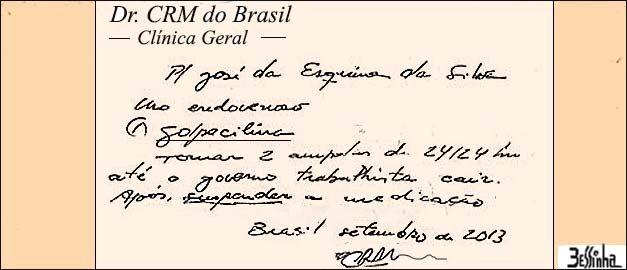 Dr. CRM do Brasil
— Clínica Geral —
P/ José da Esquina da Silva
Uso endovenoso
① golpecilina
Tomar 2 ampolas de 24/24 hs
até o governo trabalhista cair.
Após, suspender a medicação
Brasil setembro de 2013
CRM
Bessinha